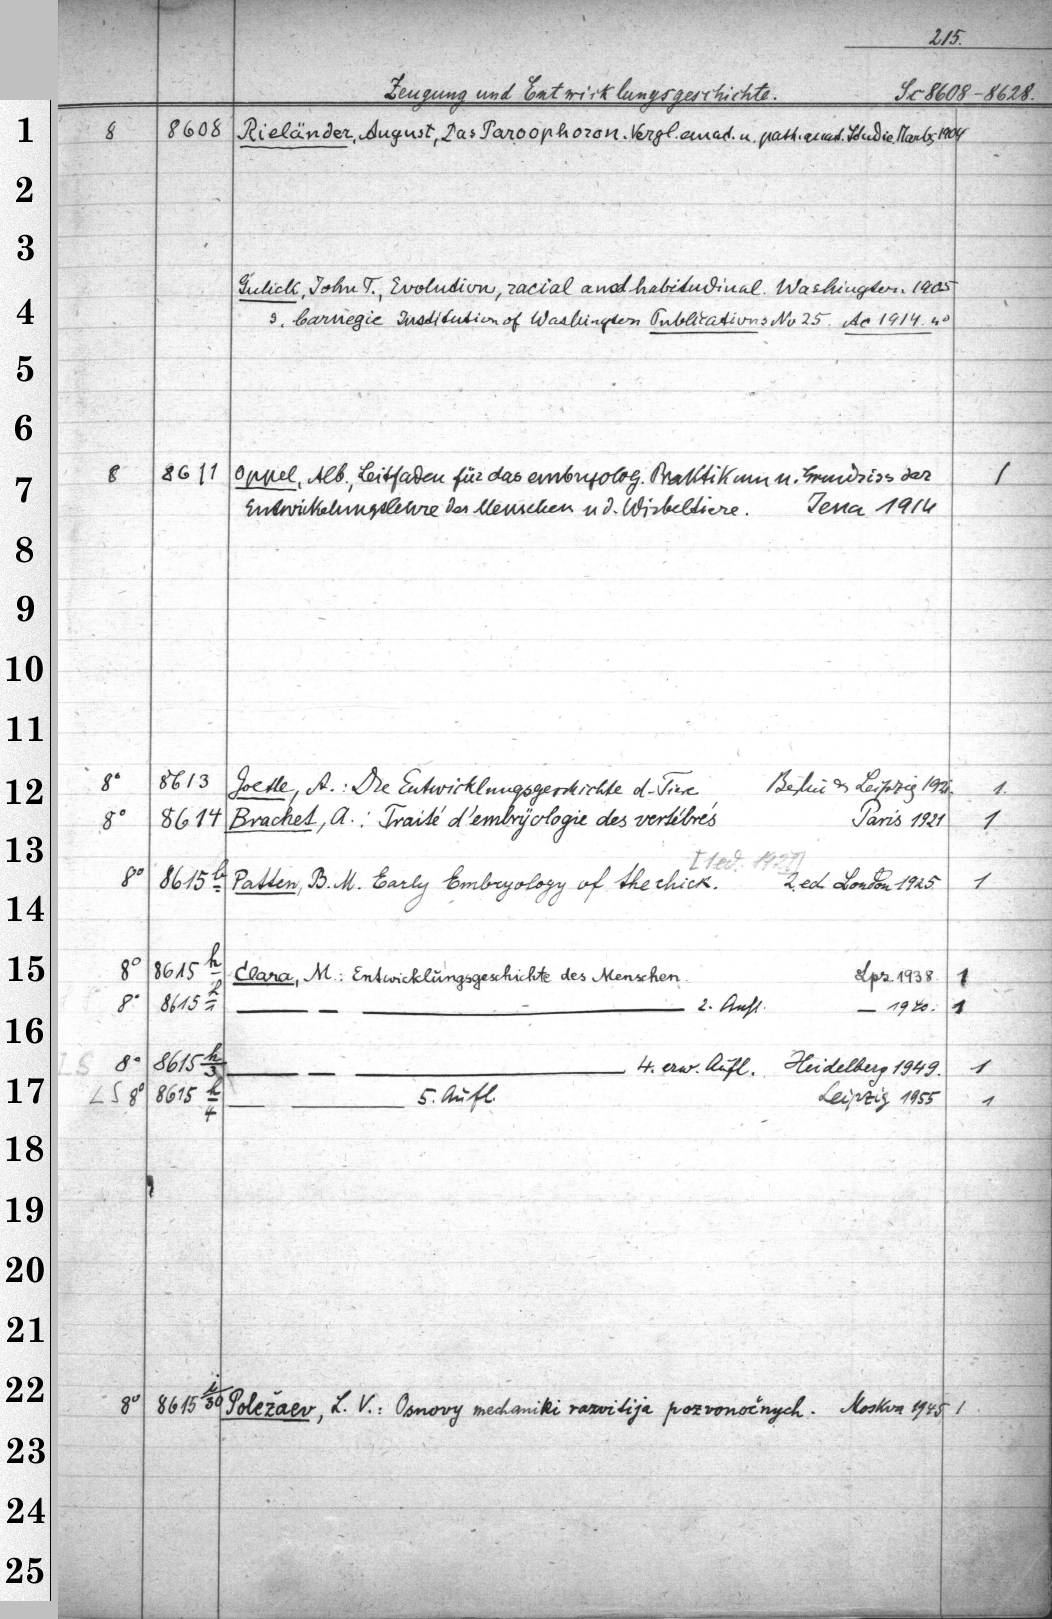 215.
Zeugung und Entwicklungsgeschichte. Sc 8608-8628.
1
8 8608 Rieländer, August, Das Paroophoron. Vergl. anat. u. path. anat. Studie. Marbg 1904
2
3
Gulick, John T., Evolution, racial and habitudinal. Washington. 1905
4
s. Carnegie Institution of Washington Publications No 25. Ac 1914 4°
5
6
8 8611 Oppel, Alb., Leitfaden für das embryolog. Praktikum u. Grundriss der 1
7
Entwickelungslehre des Menschen u d. Wirbeltiere. Jena 1914
8
9
10
11
8° 8613 A.: Die Entwicklungsgeschichte d. Tiere Berlin & Leipzig 1921. 1.
12
8° 8614 Brachet, A.: Traité d'embryologie des vertébrés Paris 1921 1
13
[1 ed. 1927]
8° 8615 b Patten, B. M. Early Embryology of the chick. 2. ed London 1925 1
14
15
8° 8615 h Clara, M.: Entwicklungsgeschichte des Menschen. Lpz. 1938 1
8° 8615 h/1 — — — 2. Aufl. — 1940. 1
16
8° 8615 h/3 — — — 4. erw. Aufl. Heidelberg 1949. 1
17
LS 8° 8615 h/4 — — 5. Aufl. Leipzig 1955 1
18
19
20
21
22
8° 8615 i/30 Poležaev, L. V.: Osnovy mechaniki razvitija pozvonočnych. Moskva 1945 1
23
24
25